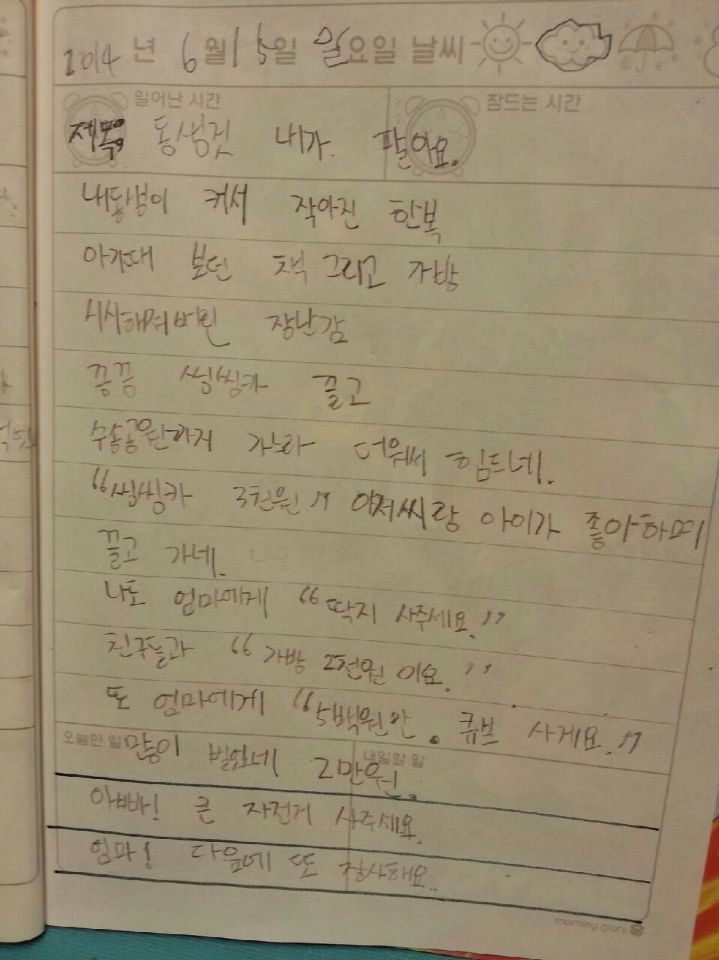 2014 년 6월 15일 일요일 날씨
일어난 시간 잠드는 시간
제목: 동생것 내가 팔아요.
내동생이 커서 작아진 한복
아가때 보던 책 그리고 가방
시시해져버린 장난감
끙끙 씽씽카 끌고
수송공원까지 가노라 더워써 힘드네.
"씽씽카 3천원" 아저씨랑 아이가 좋아하며
끌고 가네.
나도 엄마에게 "딱지 사주세요."
친구들과 "가방 2천원 이요."
또 엄마에게 "5백원만. 큐브 사게요."
오늘한 일 내일할 일
많이 벌었네 2만원.
아빠! 큰 자전거 사주세요.
엄마! 다음에 또 장사해요.
morning glory